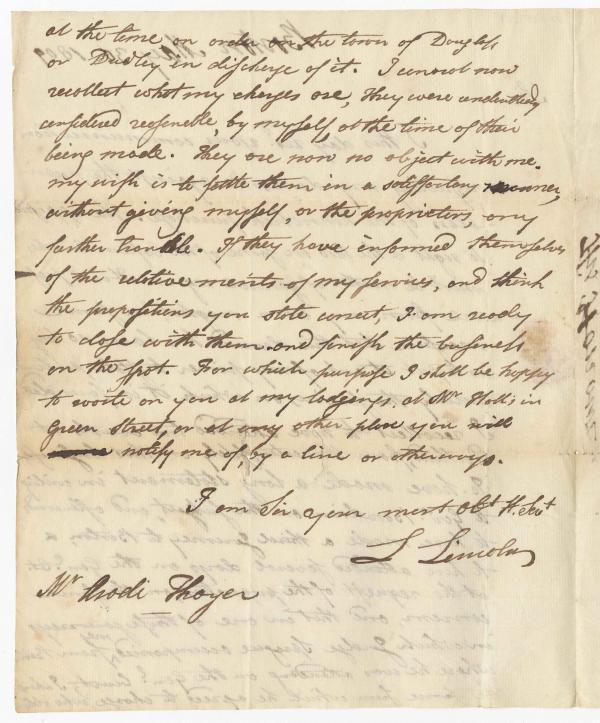 at the time an order on the town of Douglass
or Dudley in discharge of it. I cannot now
recollect what my charges are, they were undoubtedly
considered reasonable, by myself, at the time of their
being made. They are now no object with me.
my wish is to settle them in a satisfactory manner,
without giving myself, or the proprietors, any
further trouble. If they have informed themselves
of the relative merits of my services, and think
the propositions you state correct, I am ready
to close with them and finish the business
on the spot. For which purpose I shall be happy
to waite on you at my lodgings at Mr Hall's in
Green Street, or at any other place you will
notify me of, by a line or otherways.
I am Sir your most Obt H. Sevt
L Lincoln
Mr Arodi Thayer